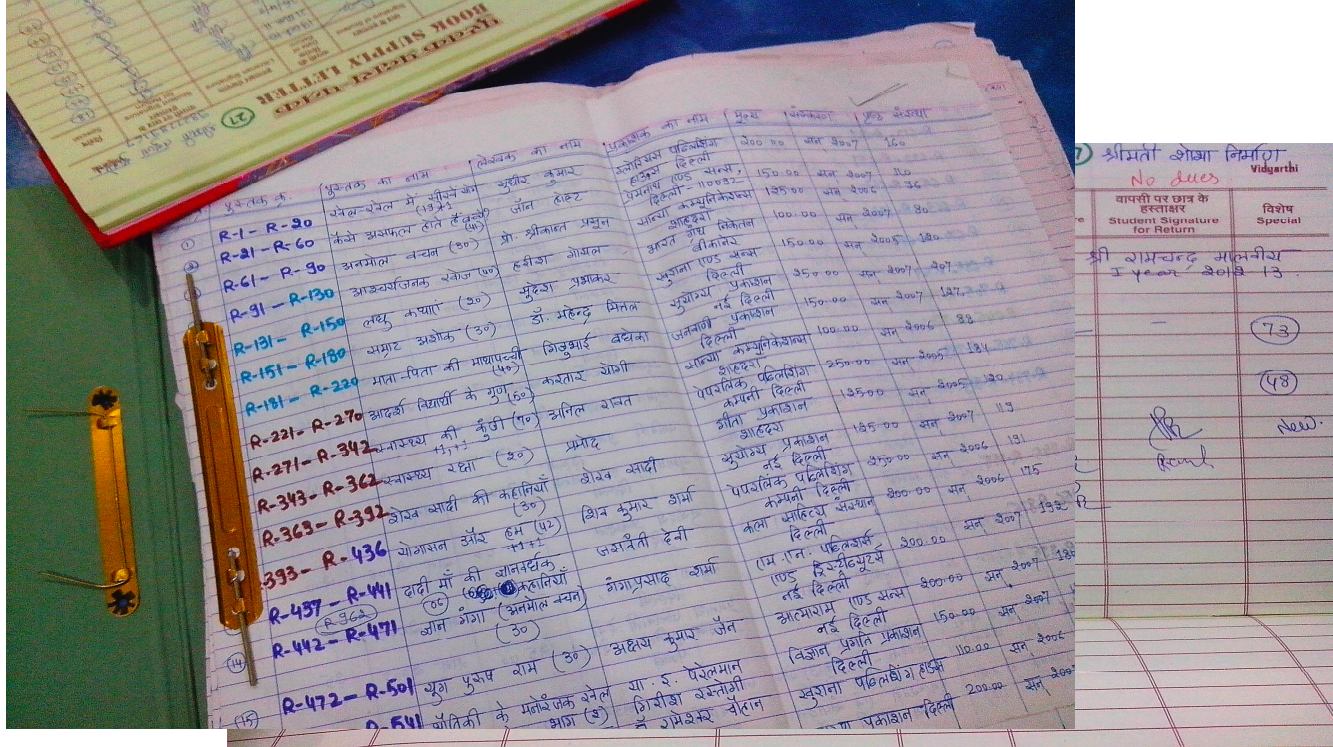 BOOK SUPPLY LETTER
27
पुस्तक क्र. पुस्तक का नाम लेखक का नाम प्रकाशक का नाम मूल्य संस्करण पृष्ठ संख्या
R-1 - R-20 खेल-खेल में सुधीर कुमार ग्लोरियस पब्लिशिंग हाउस दिल्ली 200.00 सन् 2007 160
R-21 - R-60 कैसे असफल होते हैं बच्चे (40) जॉन हाल्ट प्रेमनाथ एण्ड सन्स, दिल्ली - 110032 150.00 सन् 2007
R-61 - R-90 अनमोल वचन (30) प्रो. श्रीकान्त प्रसून सान्या कम्युनिकेशन्स शाहदरा 125.00 सन् 2006 96
R-91 - R-130 आश्चर्यजनक खोज (40) हरीश गोयल भारत ग्रंथ निकेतन बीकानेर 100.00 सन् 2007 80
R-131 - R-150 लघु कथाएं (20) सुदेश प्रभाकर खुराना एण्ड सन्स दिल्ली 150.00 सन् 2005 120
R-151 - R-180 सम्राट अशोक (30) डॉ. महेन्द्र मित्तल सुयोग्य प्रकाशन नई दिल्ली 250.00 सन् 2007 207
R-181 - R-220 माता-पिता की माथापच्ची (40) गिजुभाई बधेका जनवाणी प्रकाशन दिल्ली 150.00 सन् 2007 127
R-221 - R-270 आदर्श विद्यार्थी के गुण (50) करतार योगी सान्या कम्युनिकेशन्स शाहदरा 100.00 सन् 2006 88
R-271 - R-342 स्वास्थ्य की कुंजी (70) +1,+1 अनिल रावत पेपरलिंक पब्लिशिंग कम्पनी दिल्ली 250.00 सन् 2005 184
R-343 - R-362 स्वास्थ्य रक्षा (20) प्रमोद गीता प्रकाशन शाहदरा 125.00 सन् 2005 120
R-363 - R-392 शेख सादी की कहानियाँ (30) शेख सादी सुयोग्य प्रकाशन नई दिल्ली 125.00 सन् 2007 113
393 - R-436 योगासन और हम (42) +1+1 शिव कुमार शर्मा पेपरलिंक पब्लिशिंग कम्पनी दिल्ली 250.00 सन् 2006 191
R-437 - R-441 दादी माँ की ज्ञानवर्धक कहानियाँ (05) जशवंती देवी कला साहित्य संस्थान दिल्ली 200.00 सन् 2006 175
R-962
14 R-442 - R-471 ज्ञान गंगा (अनमोल वचन) (30) गंगाप्रसाद शर्मा एम.एन. पब्लिशर्स एण्ड डिस्ट्रीब्यूटर्स नई दिल्ली 200.00 सन् 2007 192
(15) R-472 - R-501 युग पुरुष राम (30) अक्षय कुमार जैन आत्माराम एण्ड सन्स नई दिल्ली 200.00 सन् 2007
R-541 भौतिकी के मनोरंजक खेल भाग (2) या. इ. पेरेलमान विज्ञान प्रगति प्रकाशन दिल्ली 150.00 सन् 2007
गिरीश रस्तोगी खुराना पब्लिशिंग हाउस 110.00 सन् 2006
रामेश्वर चौहान प्रकाशन दिल्ली 200.00 सन्
श्रीमती शोभा निर्माण
Vidyarthi
No dues
वापसी पर छात्र के हस्ताक्षर
Student Signature
for Return
विशेष
Special
श्री रामचन्द्र मालवीय
I year 2012 13
73
48
New.